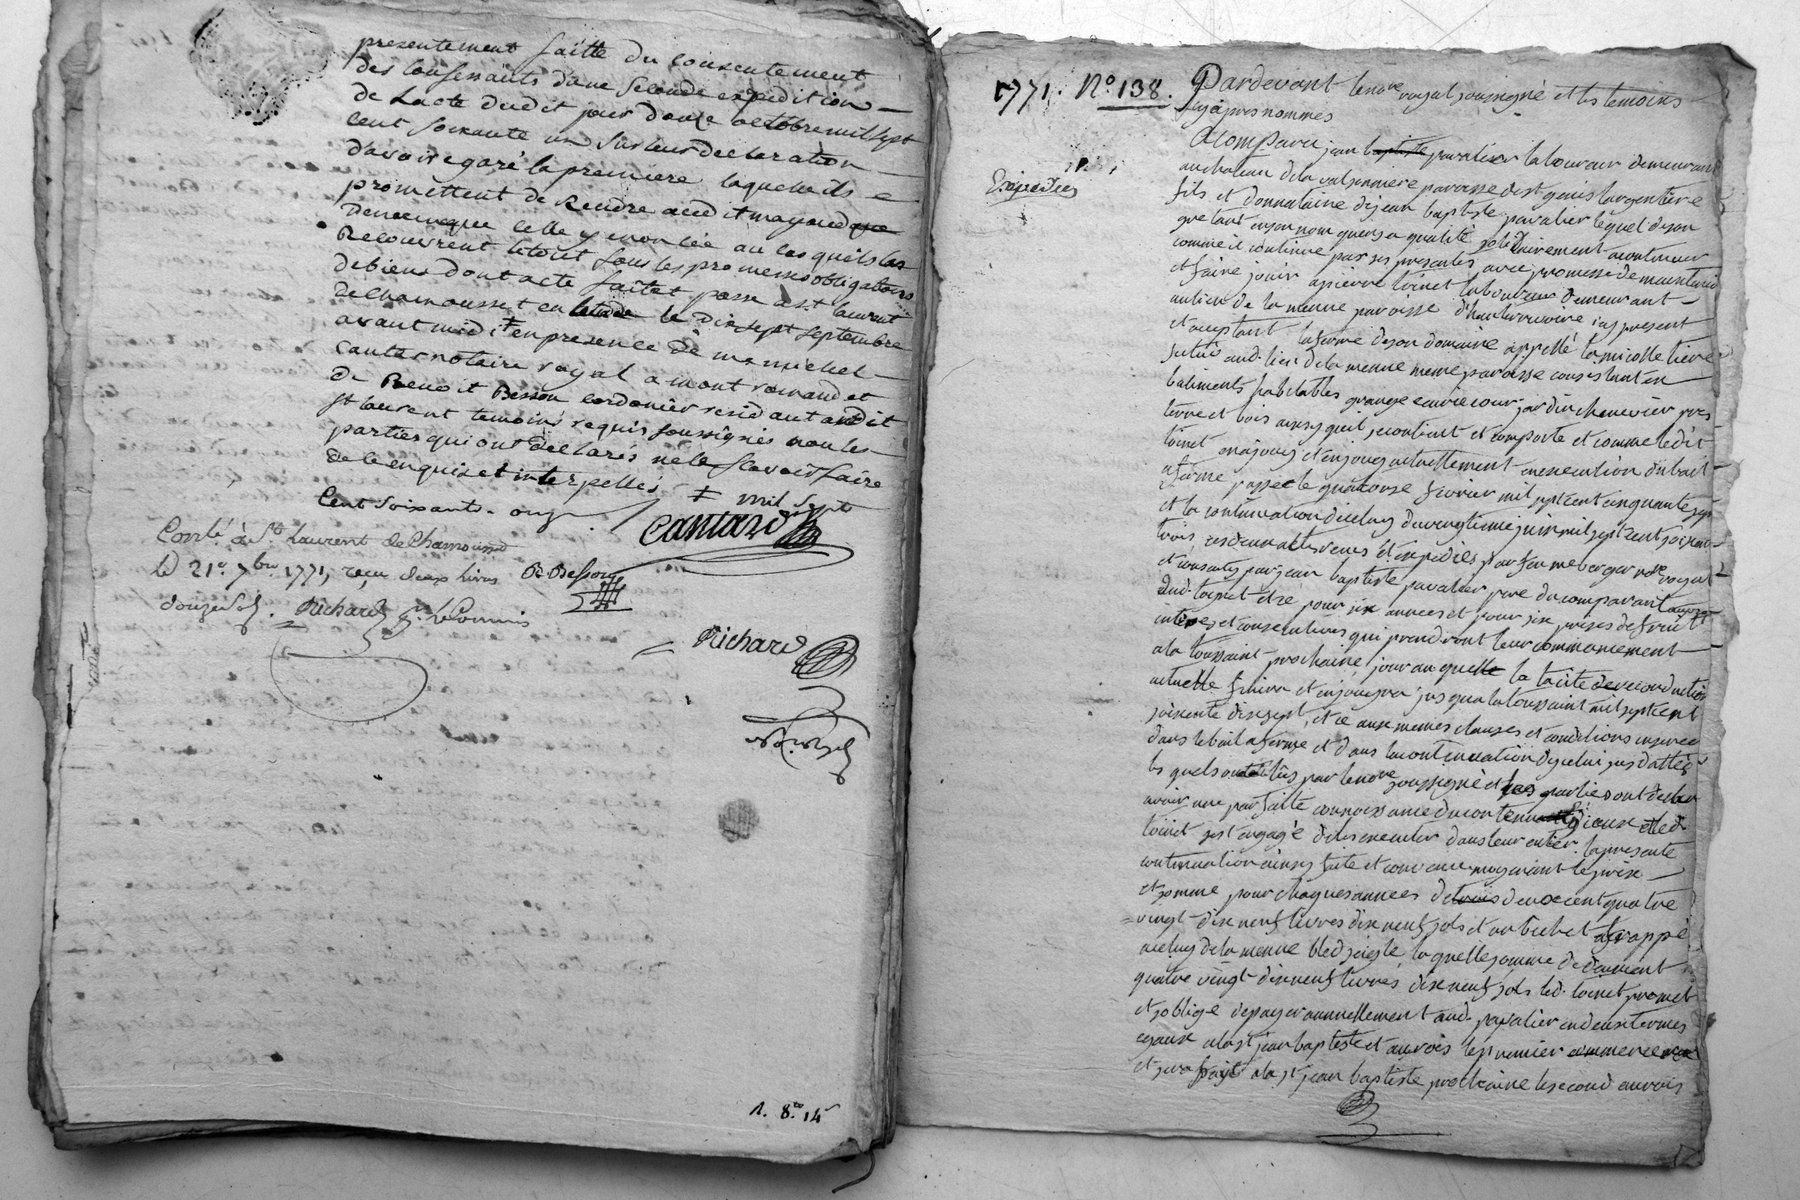 presentement faitte du consentement
des confessants d'une seconde expedition
de Lacte dudit jour douze octobre mil sept
cent soixante un sur leur declaration
d'avoir egaré la premiere laquelle ils
promettent de Rendre audit
celle y enoncée au cas quils la
Recouvrent le tout sous les promesses obligations
de biens dont acte faitet passé a st laurent
de Chamousset en letude le dix sept septembre
avant midi ‡ en presence de me michel
cantar notaire royal a mont romand et
de Benoit Besson cordonier residant audit
st laurent temoins requis soussignés non les
parties qui ont declarés ne le scavoir faire
de ce enquis et interpellés ‡ mil sept
Cent Soixante-onz
Cantard
Conlé à St Laurent de Chamousset
le 21e 7bre 1771, recu deux livres
B Besson
douze sols. Richard
Richard
1. 8. 14
1771. No 138. Pardevant le nore royal soussigné et les temoins
cy apres nommés
Expediée
A Comparu jean baptiste pavalier laboureur demeurant
au hateau de la valsonniere paroisse de st genis largentiere
fils et donnataire de jean baptiste pavalier lequel de son
gré tant en son nom quen sa qualité solidairement a continué
comme il continue par ses presentes avec promesse de maintenir
et faire jouir a pierre toinet laboureur demeurant
au lieu de la menue paroisse d'hauterivoire icy present
et acceptant la ferme de son domaine appellé la micolletiere
situé aud. lieu de la menue meme paroisse consistant en
batiments habitables grange ecurie cour jardin chenevier prés
terre et bois ainsy quil se contient et comporte et comme ledit
toinet en a jouy et en jouey actuellement en execution du bail
a ferme passé le quatorze fevrier mil sept cent cinquante sept
et la continuation diceluy du vingtieme juin mil sept cent soixante
trois, les deux actes reçus et expediés par feu me berger nore royal
et consentis par jean baptiste pavalier pere du comparant
aud. toinet et ce pour six années et pour six prises de fruits
entieres et consecutives qui prendront leur commancement
a la toussaint prochaine, jour auquel la tacite reconduction
actuelle finira et en jouira jusqu'a la toussaint mil sept cent
soixante dix sept, et ce aux memes clauses et conditions inserées
dans le bail a ferme et dans la continuation dyceluy sus dattés
les quels ont été lûs par le nore soussigné et les parties ont declaré
avoir une parfaite connoissance du contenu diceux et led.
toinet s'est engagé de les executer dans leur entier. la presente
continuation ainsy faite et convenue moyenant le prix
et somme pour chaques années de trois deux cent quatre
vingt-dix neuf livres dix neuf sols et un bichet
de la menue bled seigle, la quelle somme de deux cent
quatre vingt-dix neuf livres dix neuf sols led. toinet promet
et soblige de payer annuellement aud. pavalier en deux termes
egaux a la st jean baptiste et aux rois le premier
et sera payé a la st jean baptiste prochaine le second aux rois